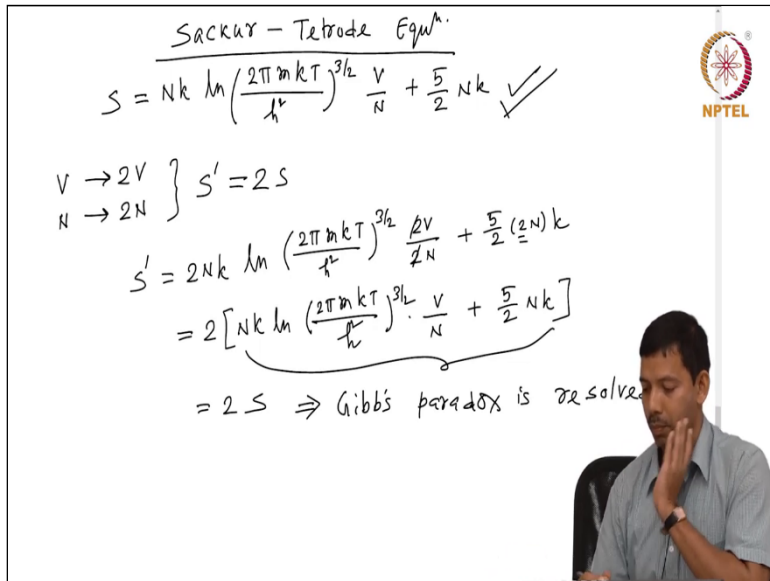 Sackur – Tetrode Equⁿ.
S = Nk ln(2πmkT/h²)^3/2 V/N + 5/2 Nk ✓✓
®
NPTEL
V → 2V
N → 2N } S' = 2S
S' = 2Nk ln (2πmkT/h²)^3/2 2V/2N + 5/2 (2N) k
= 2 [Nk ln (2πmkT/h²)^3/2 · V/N + 5/2 Nk]
= 2S ⇒ Gibb's paradox is resolve